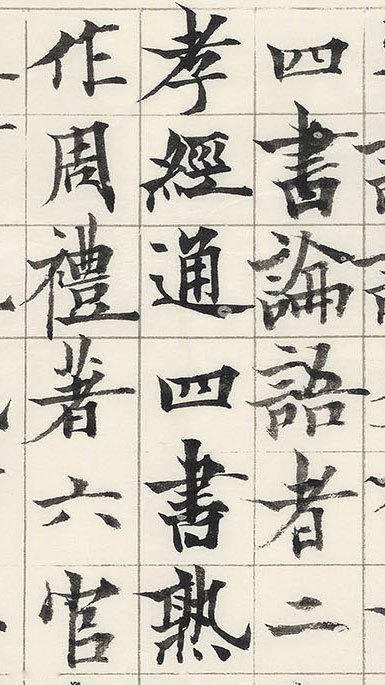 四書論語者二
孝經通四書熟
作周禮著六官